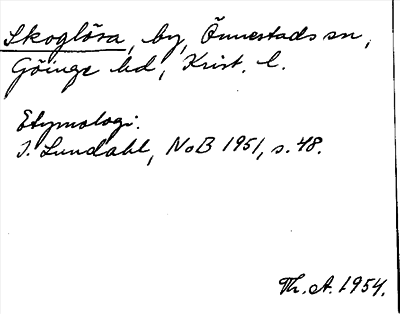 Skoglösa, by, Önnestads sn,
Göinge hd, Krist. l.
Etymologi:
I. Lundahl, NoB 1951, s. 48.
Th. A. 1954.